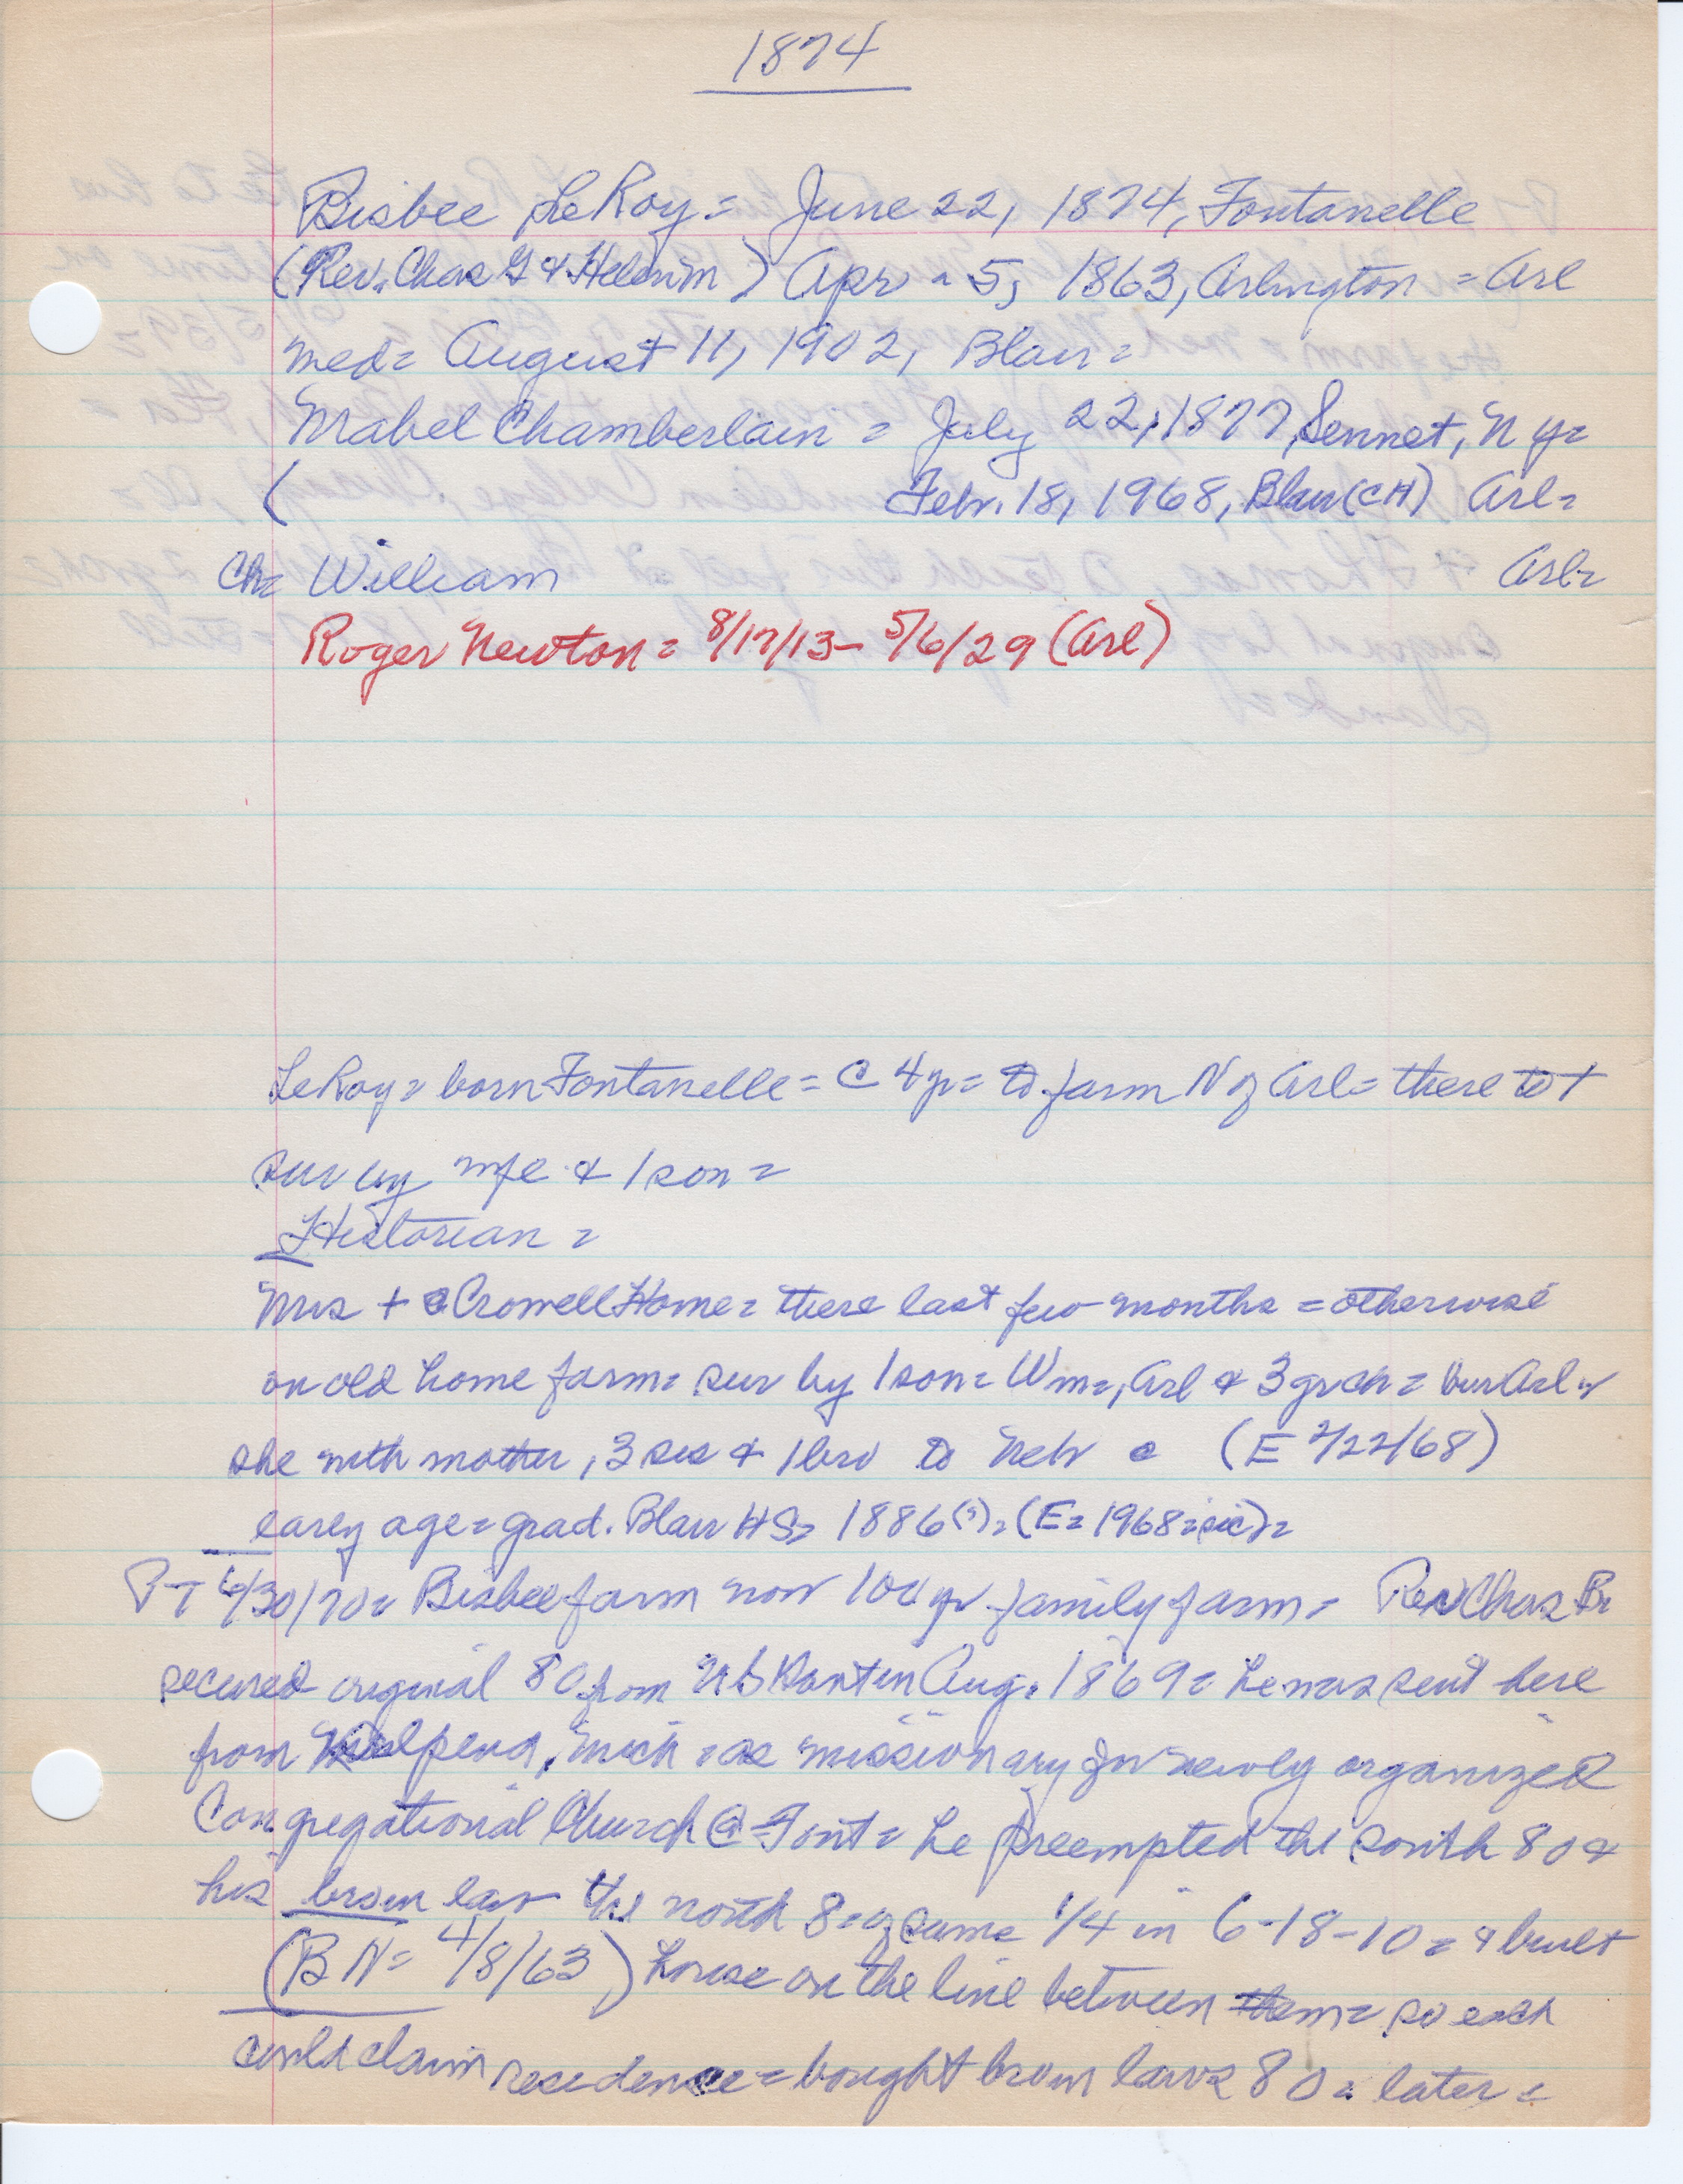 1874
Bisbee LeRoy = June 22, 1874, Fontanelle
(Rev. Chas G & Helen m) Apr = 5, 1863, Arlington = Arl
med = August 11, 1902, Blair =
Mabel Chamberlain = July 22, 1877, Sennet, N y =
( Febr. 18, 1968, Blair (CH) Arl =
Ch = William Arl =
Roger Newton = 8/17/13 - 5/6/29 (Arl)
LeRoy = born Fontanelle = @ 4 yr = to farm N of Arl = there to +
sur by wfe & 1 son =
Historian =
Mrs + @ Crowell Home = there last few months = otherwise
on old home farm = sur by 1 son = Wm =, Arl & 3 grch = bur Arl =
she with mother, 3 sis & 1 bro to Nebr @ (E 2/22/68)
early age = grad. Blair HS = 1886 (?) = (E = 1968 = sic) =
PT 6/30/70 = Bisbee farm now 100 yr family farm = Rev Chas B
secured original 80 from in Aug. 1869 = he was sent here
from Mich = as missionary for newly organized
Congregational Church @ Font = he preempted the south 80 &
his bro in law the north 80 of same 1/4 in 6-18-10 = & built
(BN = 4/8/63) house on the line between them = so each
could claim residence = bought bro in laws 80 = later =